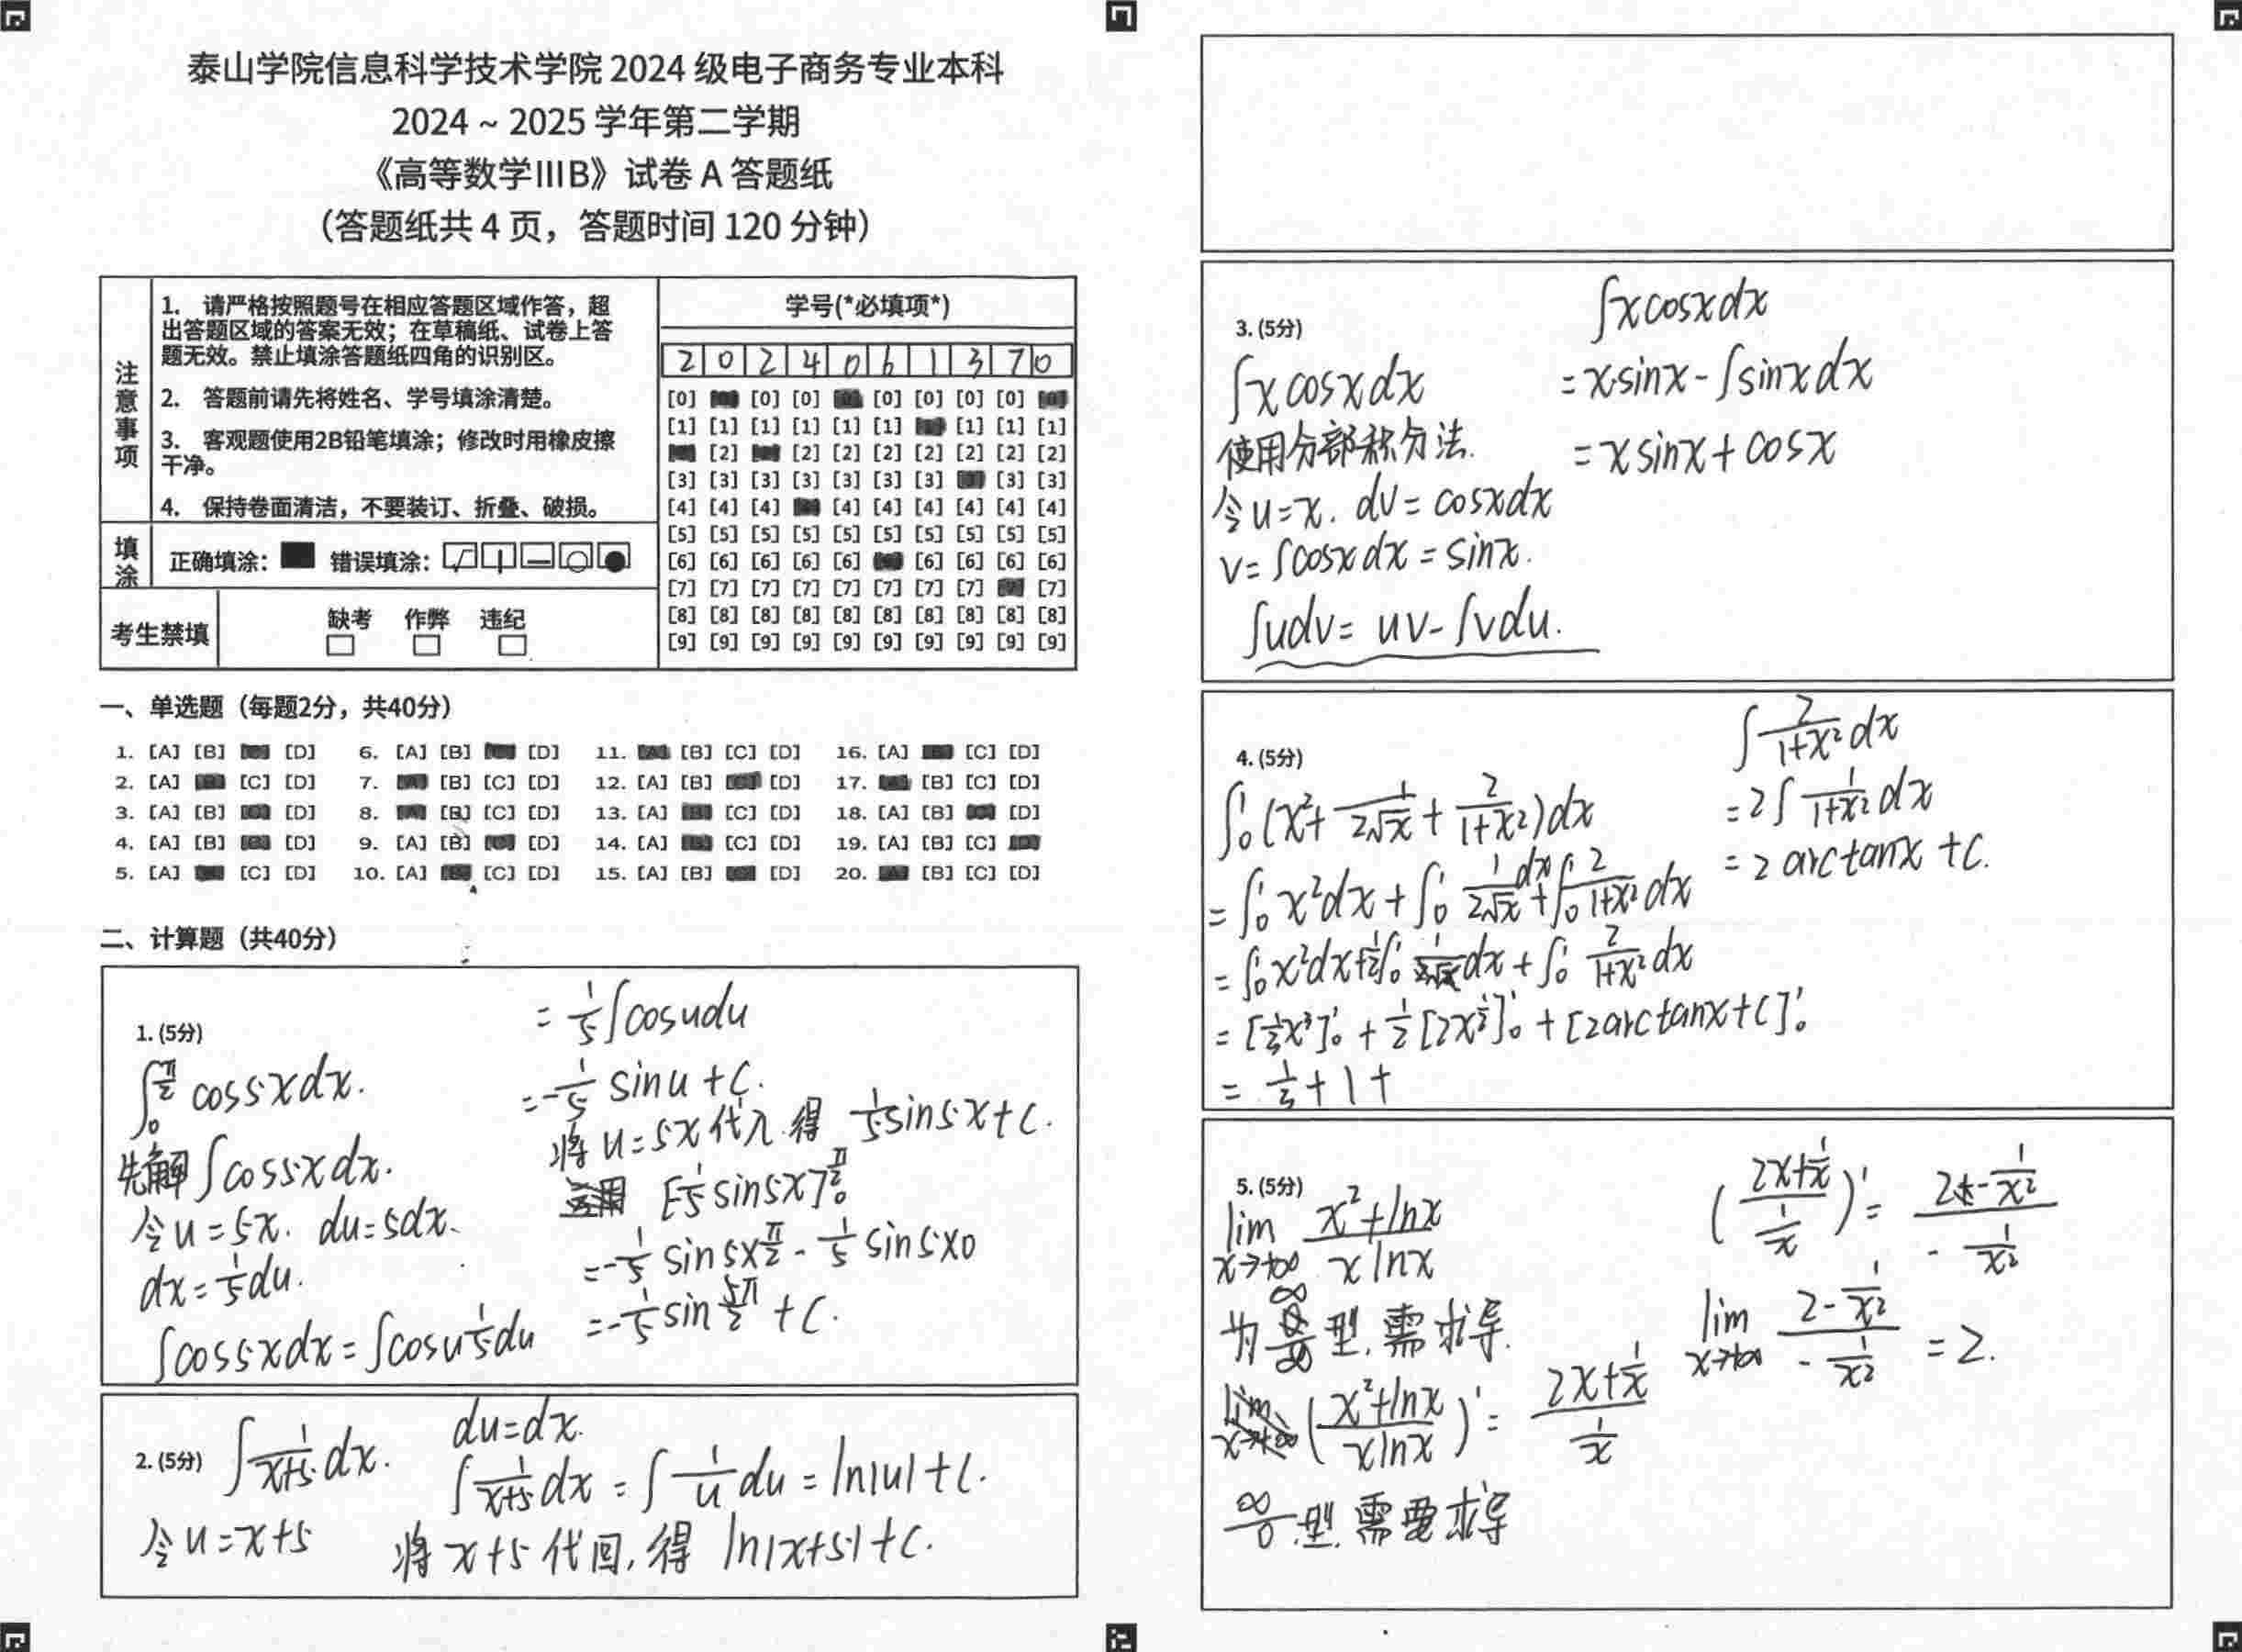 泰山学院信息科学技术学院 2024 级电子商务专业本科
2024 ~ 2025 学年第二学期
《高等数学ⅢB》试卷 A 答题纸
（答题纸共 4 页，答题时间 120 分钟）
注意事项
1. 请严格按照题号在相应答题区域作答，超
出答题区域的答案无效；在草稿纸、试卷上答
题无效。禁止填涂答题纸四角的识别区。
2. 答题前请先将姓名、学号填涂清楚。
3. 客观题使用2B铅笔填涂；修改时用橡皮擦
干净。
4. 保持卷面清洁，不要装订、折叠、破损。
填涂
正确填涂： 错误填涂：
考生禁填
缺考 作弊 违纪
学号(*必填项*)
2 0 2 4 0 6 1 3 7 0
[0] [0] [0] [0] [0] [0] [0]
[1] [1] [1] [1] [1] [1] [1] [1] [1]
[2] [2] [2] [2] [2] [2] [2] [2]
[3] [3] [3] [3] [3] [3] [3] [3] [3]
[4] [4] [4] [4] [4] [4] [4] [4] [4]
[5] [5] [5] [5] [5] [5] [5] [5] [5] [5]
[6] [6] [6] [6] [6] [6] [6] [6] [6]
[7] [7] [7] [7] [7] [7] [7] [7] [7]
[8] [8] [8] [8] [8] [8] [8] [8] [8] [8]
[9] [9] [9] [9] [9] [9] [9] [9] [9] [9]
一、单选题（每题2分，共40分）
1. [A] [B] [D] 6. [A] [B] [D] 11. [B] [C] [D] 16. [A] [C] [D]
2. [A] [C] [D] 7. [B] [C] [D] 12. [A] [B] [D] 17. [B] [C] [D]
3. [A] [B] [D] 8. [B] [C] [D] 13. [A] [C] [D] 18. [A] [B] [D]
4. [A] [B] [D] 9. [A] [B] [D] 14. [A] [C] [D] 19. [A] [B] [C]
5. [A] [C] [D] 10. [A] [C] [D] 15. [A] [B] [D] 20. [B] [C] [D]
二、计算题（共40分）
1. (5分)
∫₀^(π/2) cos5xdx.
先解∫cos5xdx.
令u=5x. du=5dx.
dx=1/5 du.
∫cos5xdx=∫cosu 1/5 du
= 1/5 ∫cosudu
=-1/5 sinu+C.
将u=5x代入.得 1/5 sin5x+C.
[1/5 sin5x]₀^(π/2)
=-1/5 sin5×π/2 - 1/5 sin5×0
=-1/5 sin 5π/2 + C.
2. (5分) ∫1/(x+5) dx.
令u=x+5
du=dx.
∫1/(x+5) dx = ∫1/u du = ln|u|+C.
将x+5代回,得 ln|x+5|+C.
3. (5分)
∫xcosxdx
使用分部积分法.
令u=x. dv=cosxdx
v=∫cosxdx=sinx.
∫udv=uv-∫vdu.
∫xcosxdx
=x·sinx-∫sinxdx
=xsinx+cosx
4. (5分)
∫₀¹(x²+1/(2√x)+2/(1+x²))dx
=∫₀¹x²dx+∫₀¹1/(2√x)dx+∫₀¹2/(1+x²)dx
=∫₀¹x²dx+1/2∫₀¹ dx+∫₀¹2/(1+x²)dx
=[1/3x³]₀¹+1/2[2x^(1/2)]₀¹+[2arctanx+C]₀¹
=1/3+1+
∫2/(1+x²)dx
=2∫1/(1+x²)dx
=2arctanx+C.
5. (5分)
lim x→+∞ (x²+lnx)/(xlnx)
为∞/∞型.需求导.
((x²+lnx)/(xlnx))'=(2x+1/x)/(1/x)
∞/0型.需要求导
((2x+1/x)/(1/x))'=(2-1/x²)/(-1/x²)
lim x→+∞ (2-1/x²)/(-1/x²)=2.